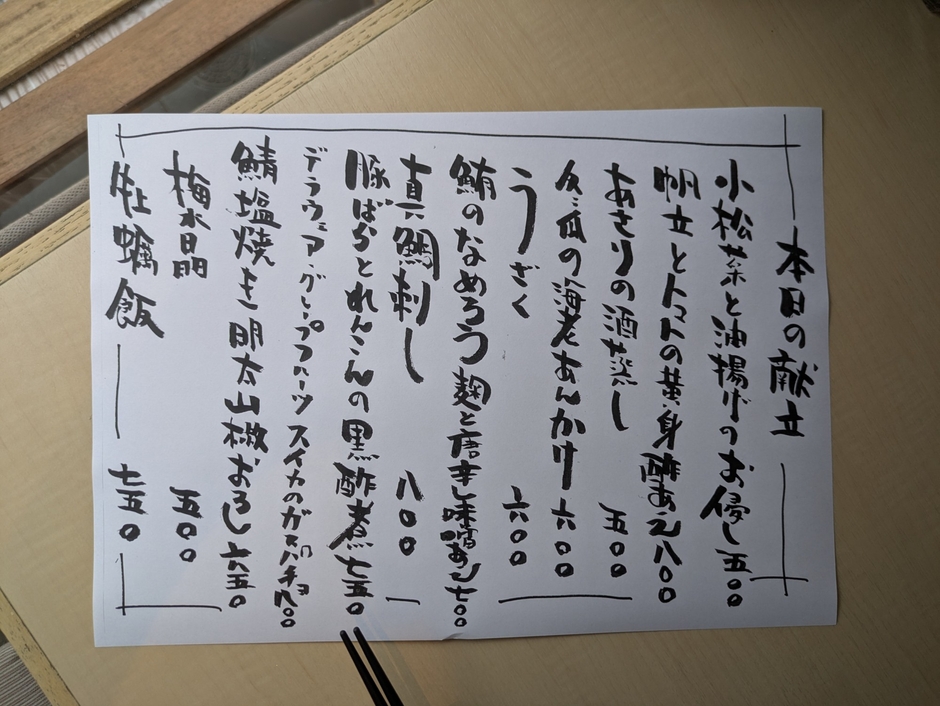 本日の献立
小松菜と油揚げのお侵し 五〇〇
帆立とトマトの黄身酢あえ 八〇〇
あさりの酒蒸し 五〇〇
冬瓜の海老あんかけ 六〇〇
うざく 六〇〇
鮪のなめろう 麹と唐辛し味噌あえ 七〇〇
真鯛刺し 八〇〇
豚ばらとれんこんの黒酢煮 七五〇
デラウェア・グレープフルーツ スイカのガスパチョ 八〇〇
鯖塩焼き 明太山椒おろし 六五〇
梅水晶 五〇〇
牡蠣飯 七五〇